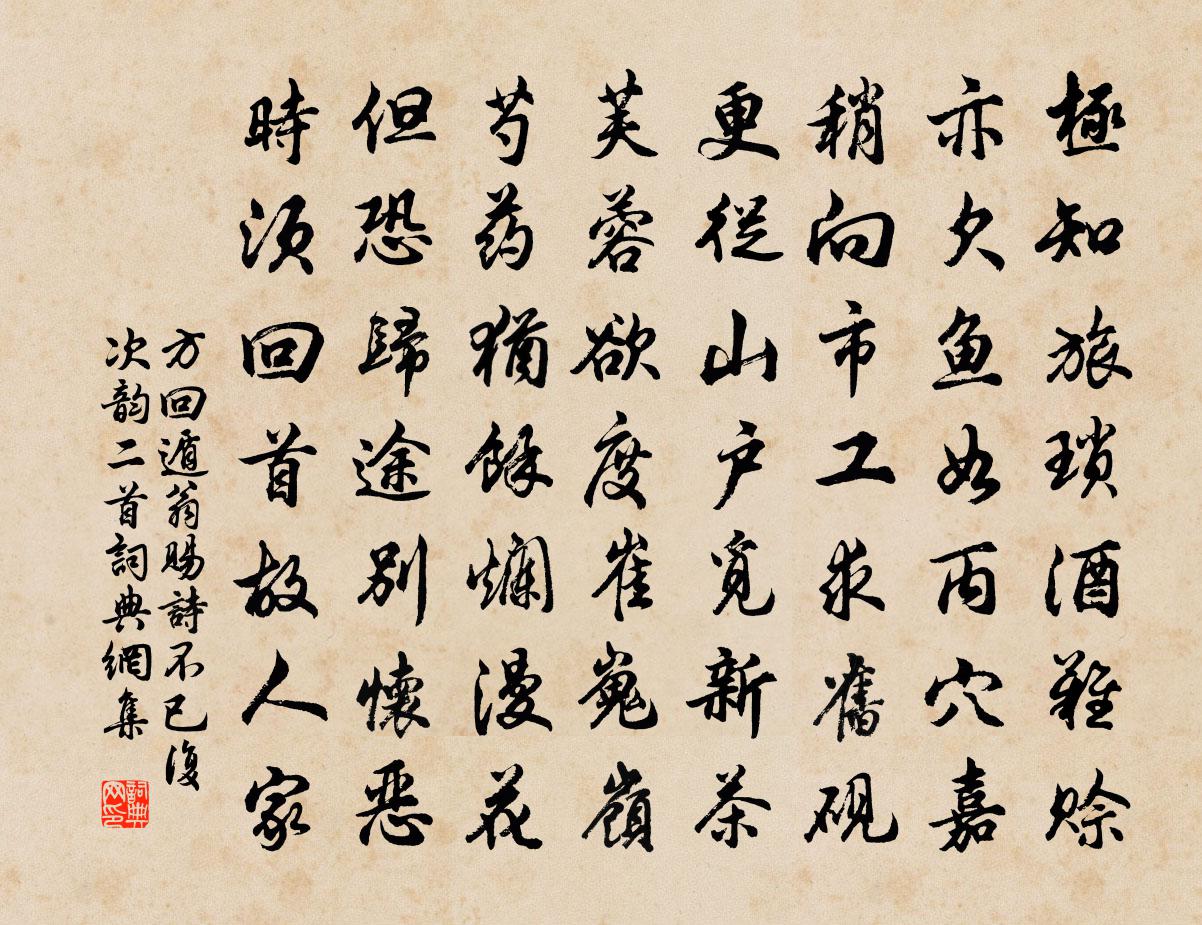 極知旅瑣酒難賒
亦欠魚如丙穴嘉
稍向市工求舊硯
更從山戶覓新茶
芙蓉欲度崔嵬嶺
芍药猶餘爛漫花
但恐歸途別懷惡
時須回首故人家
方回遁翁賜詩不已復
次韵二首詞典網集
詞典
网印